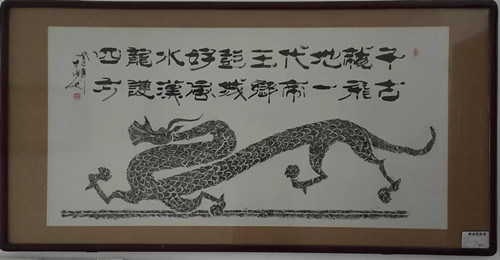 千古
龍飛
地一
代帝
王鄉
彭城
好風
水漢
龍護
四方